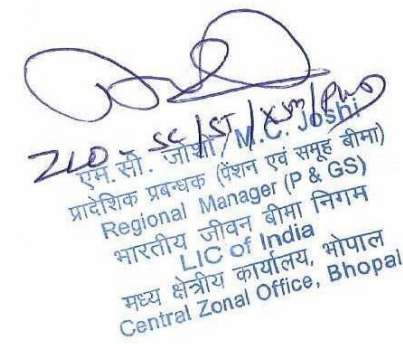 ZLO - SC/ST/XSM/PWD
एम. सी. जोशी / M.C. Joshi
प्रादेशिक प्रबन्धक (पेंशन एवं समूह बीमा)
Regional Manager (P & GS)
भारतीय जीवन बीमा निगम
LIC of India
मध्य क्षेत्रीय कार्यालय, भोपाल
Central Zonal Office, Bhopal